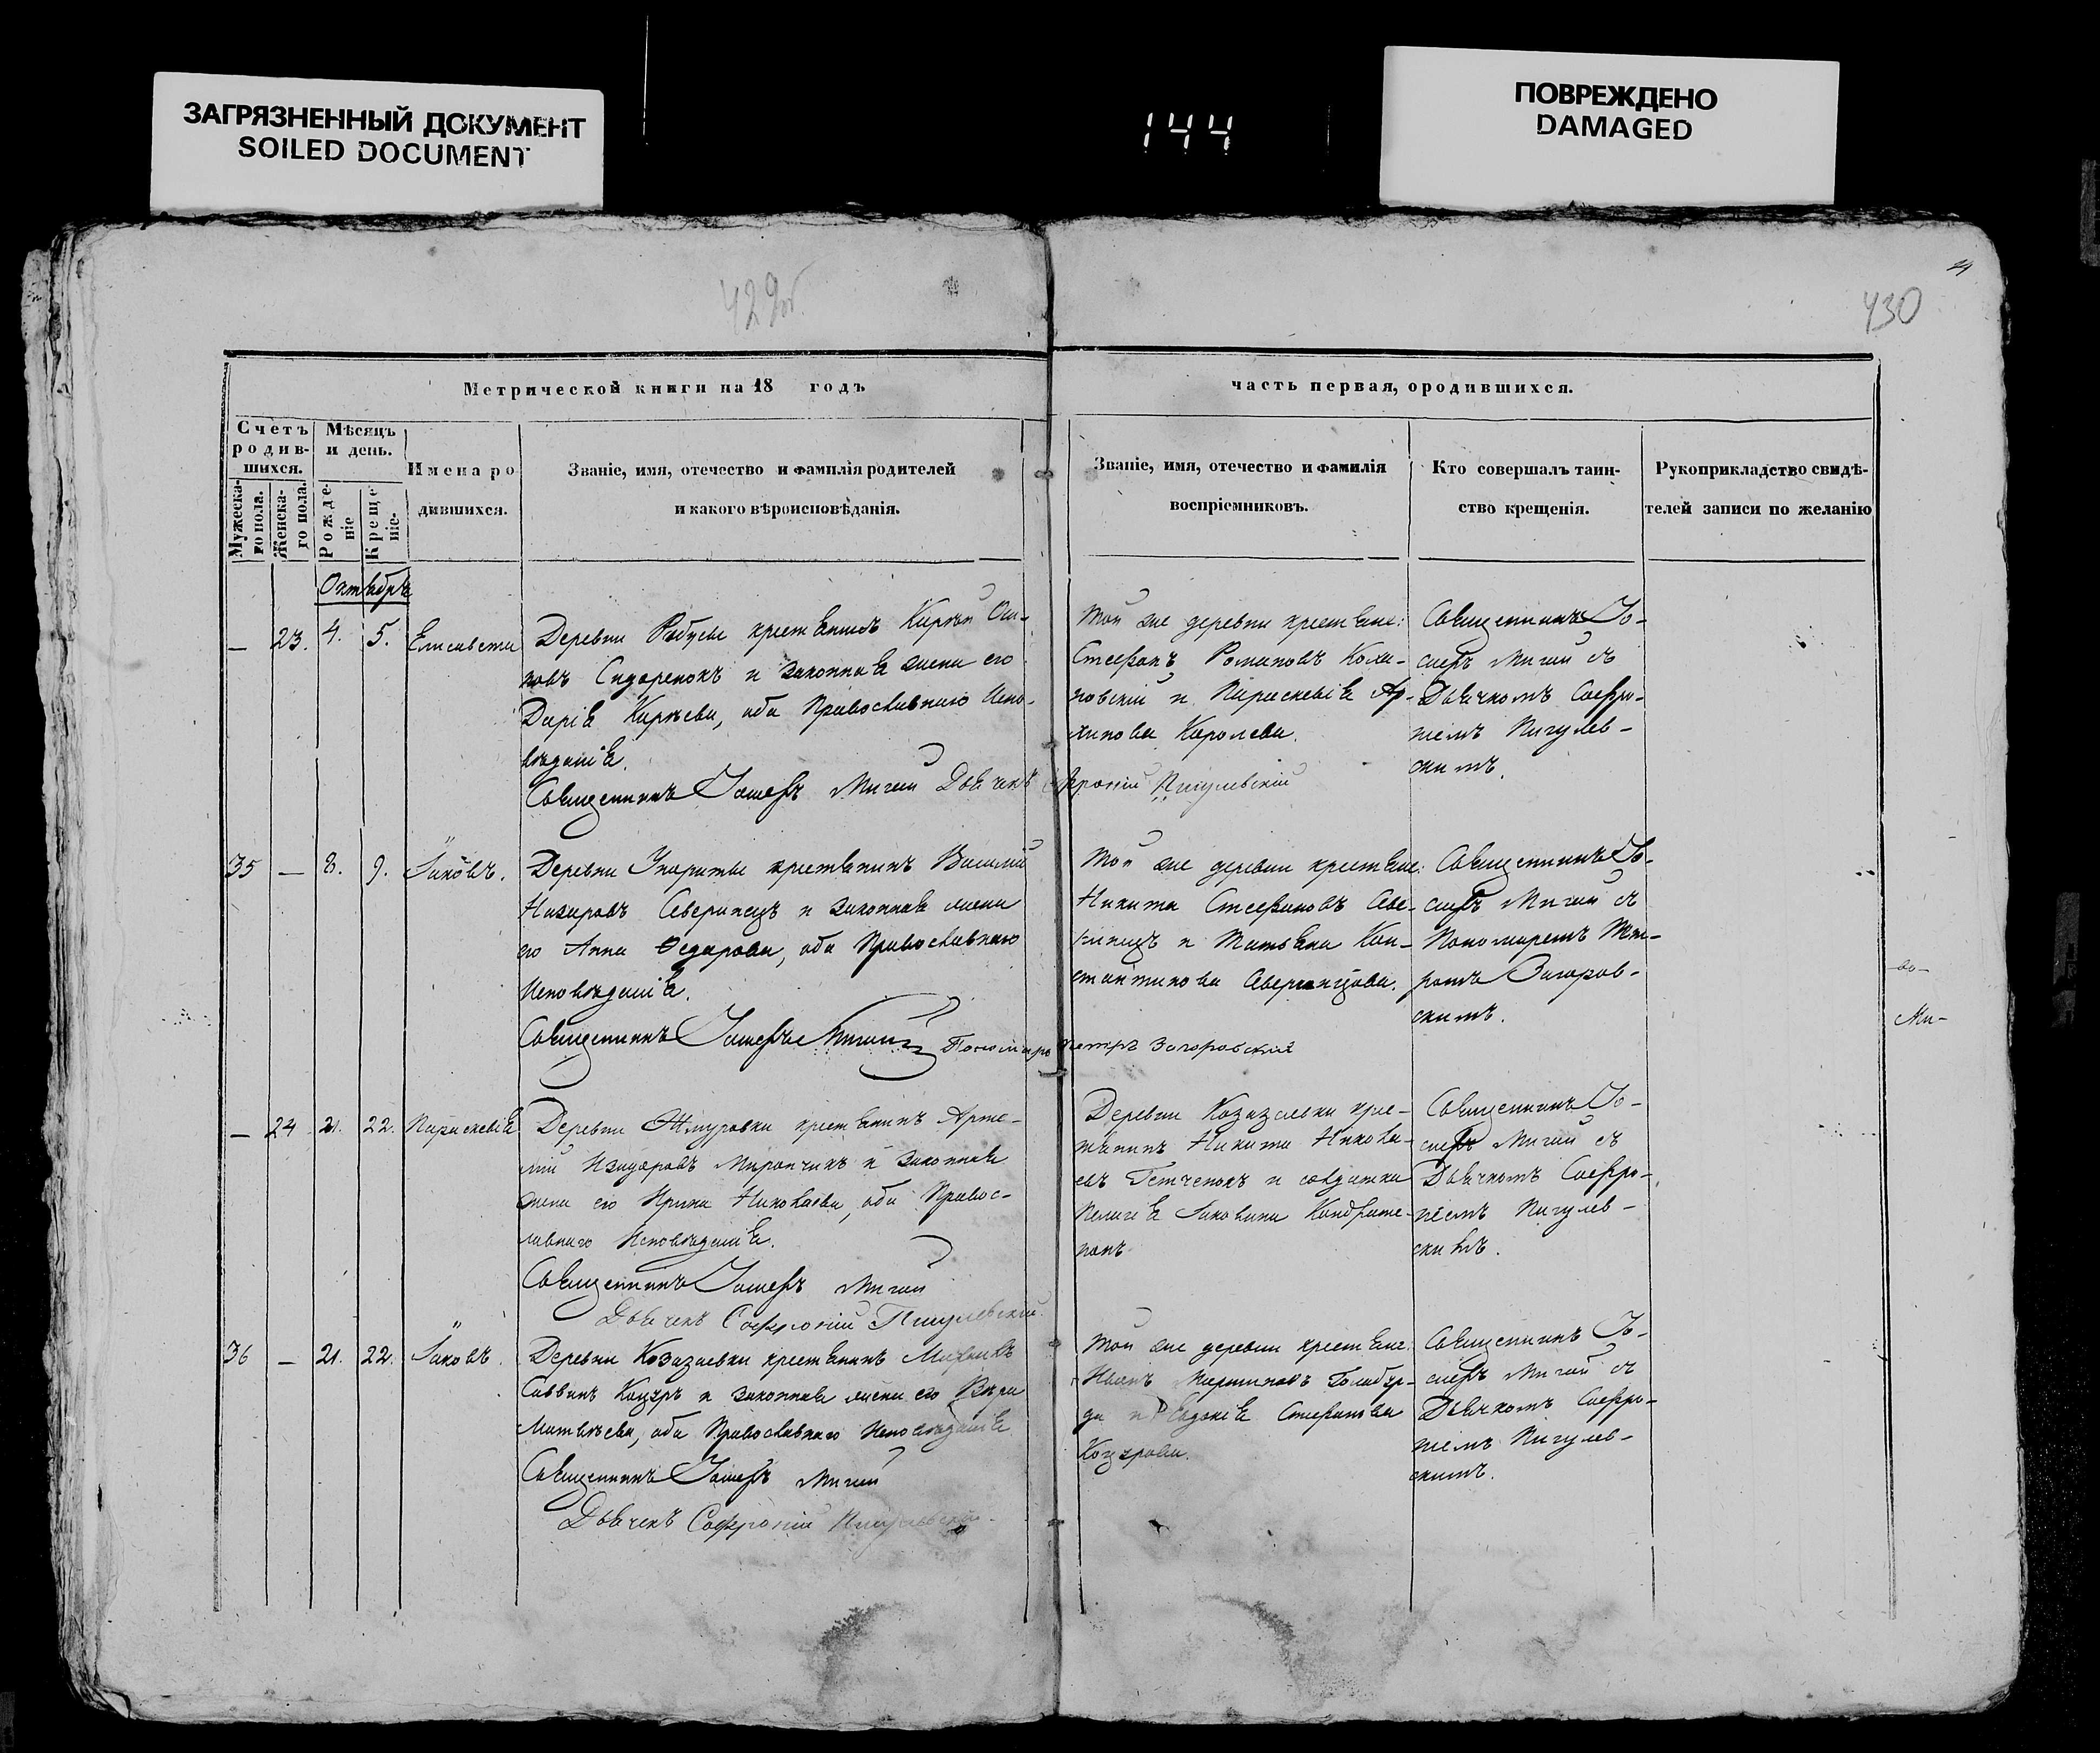 ЗАГРЯЗНЕННЫЙ ДОКУМЕНТ
SOILED DOCUMENT
144
ПОВРЕЖДЕНО
DAMAGED
429об
430
Метрической книги на 18 годъ
часть первая, о родившихся.
Счетъ родив-шихся.
Мужеска-го пола.
Женска-го пола.
Мѣсяцъ и день.
Рожде-ніе
Креще-ніе.
Имена ро-
дившихся.
Званіе, имя, отечество и фамилія родителей
и какого вѣроисповѣданія.
Званіе, имя, отечество и фамилія
воспріемниковъ.
Кто совершалъ таин-
ство крещенія.
Рукоприкладство свидѣ-
телей записи по желанію
Октябрь
— 23. 4. 5. Елисавета
Деревни крестьянинъ Оси-
повъ Сидоренокъ и законная жена его
Дарія Киреева, оба Православнаго Испо-
вѣданія.
Священникъ Іосифъ Мигай Дьячекъ Софроній Пигулевскій
Той же деревни крестьяне:
Стефанъ Романовъ Коля-
новскій и Параскевія Ар-
хипова Королева.
Священникъ Іо-
сифъ Мигай съ
Дьячкомъ Софро-
ніемъ Пигулев-
скимъ.
35 — 8. 9. Іаковъ.
Деревни крестьянинъ Василій
Назаровъ Северинецъ и законная жена
его Анна Ѳедорова, оба Православнаго
Исповѣданія.
Священникъ Іосифъ Мигай Пономарь Петръ Загоровскій
Той же деревни крестьяне:
Никита Стефановъ Севе-
ринецъ и Татьяна Кон-
стантинова Северинцова.
Священникъ Іо-
сифъ Мигай съ
Пономаремъ Пет-
ромъ Загоров-
скимъ.
— 24 21. 22. Параскевія
Деревни крестьянинъ Арте-
мій Изидоровъ Мирончикъ и законная
жена его Ирина Николаева, оба Правос-
лавнаго Исповѣданія.
Священникъ Іосифъ Мигай
Дьячекъ Софроній Пигулевскій
Деревни Козазаевки крес-
тьянинъ Никита Никола-
евъ и солдатка
Пелагея Іаковлева Кондрате-
нокъ
Священникъ Іо-
сифъ Мигай съ
Дьячкомъ Софро-
ніемъ Пигулев-
скимъ.
36 — 21. 22. Іаковъ.
Деревни Козазаевки крестьянинъ Михаилъ
Саввинъ Коцуръ и законная жена его Вѣра
Матвѣева, оба Православнаго Исповѣданія
Священникъ Іосифъ Мигай
Дьячекъ Софроній Пигулевскій
Той же деревни крестьяне:
Иванъ Мартиновъ
и Евдокія Стефанова
Коцурова.
Священникъ Іо-
сифъ Мигай съ
Дьячкомъ Софро-
ніемъ Пигулев-
скимъ.